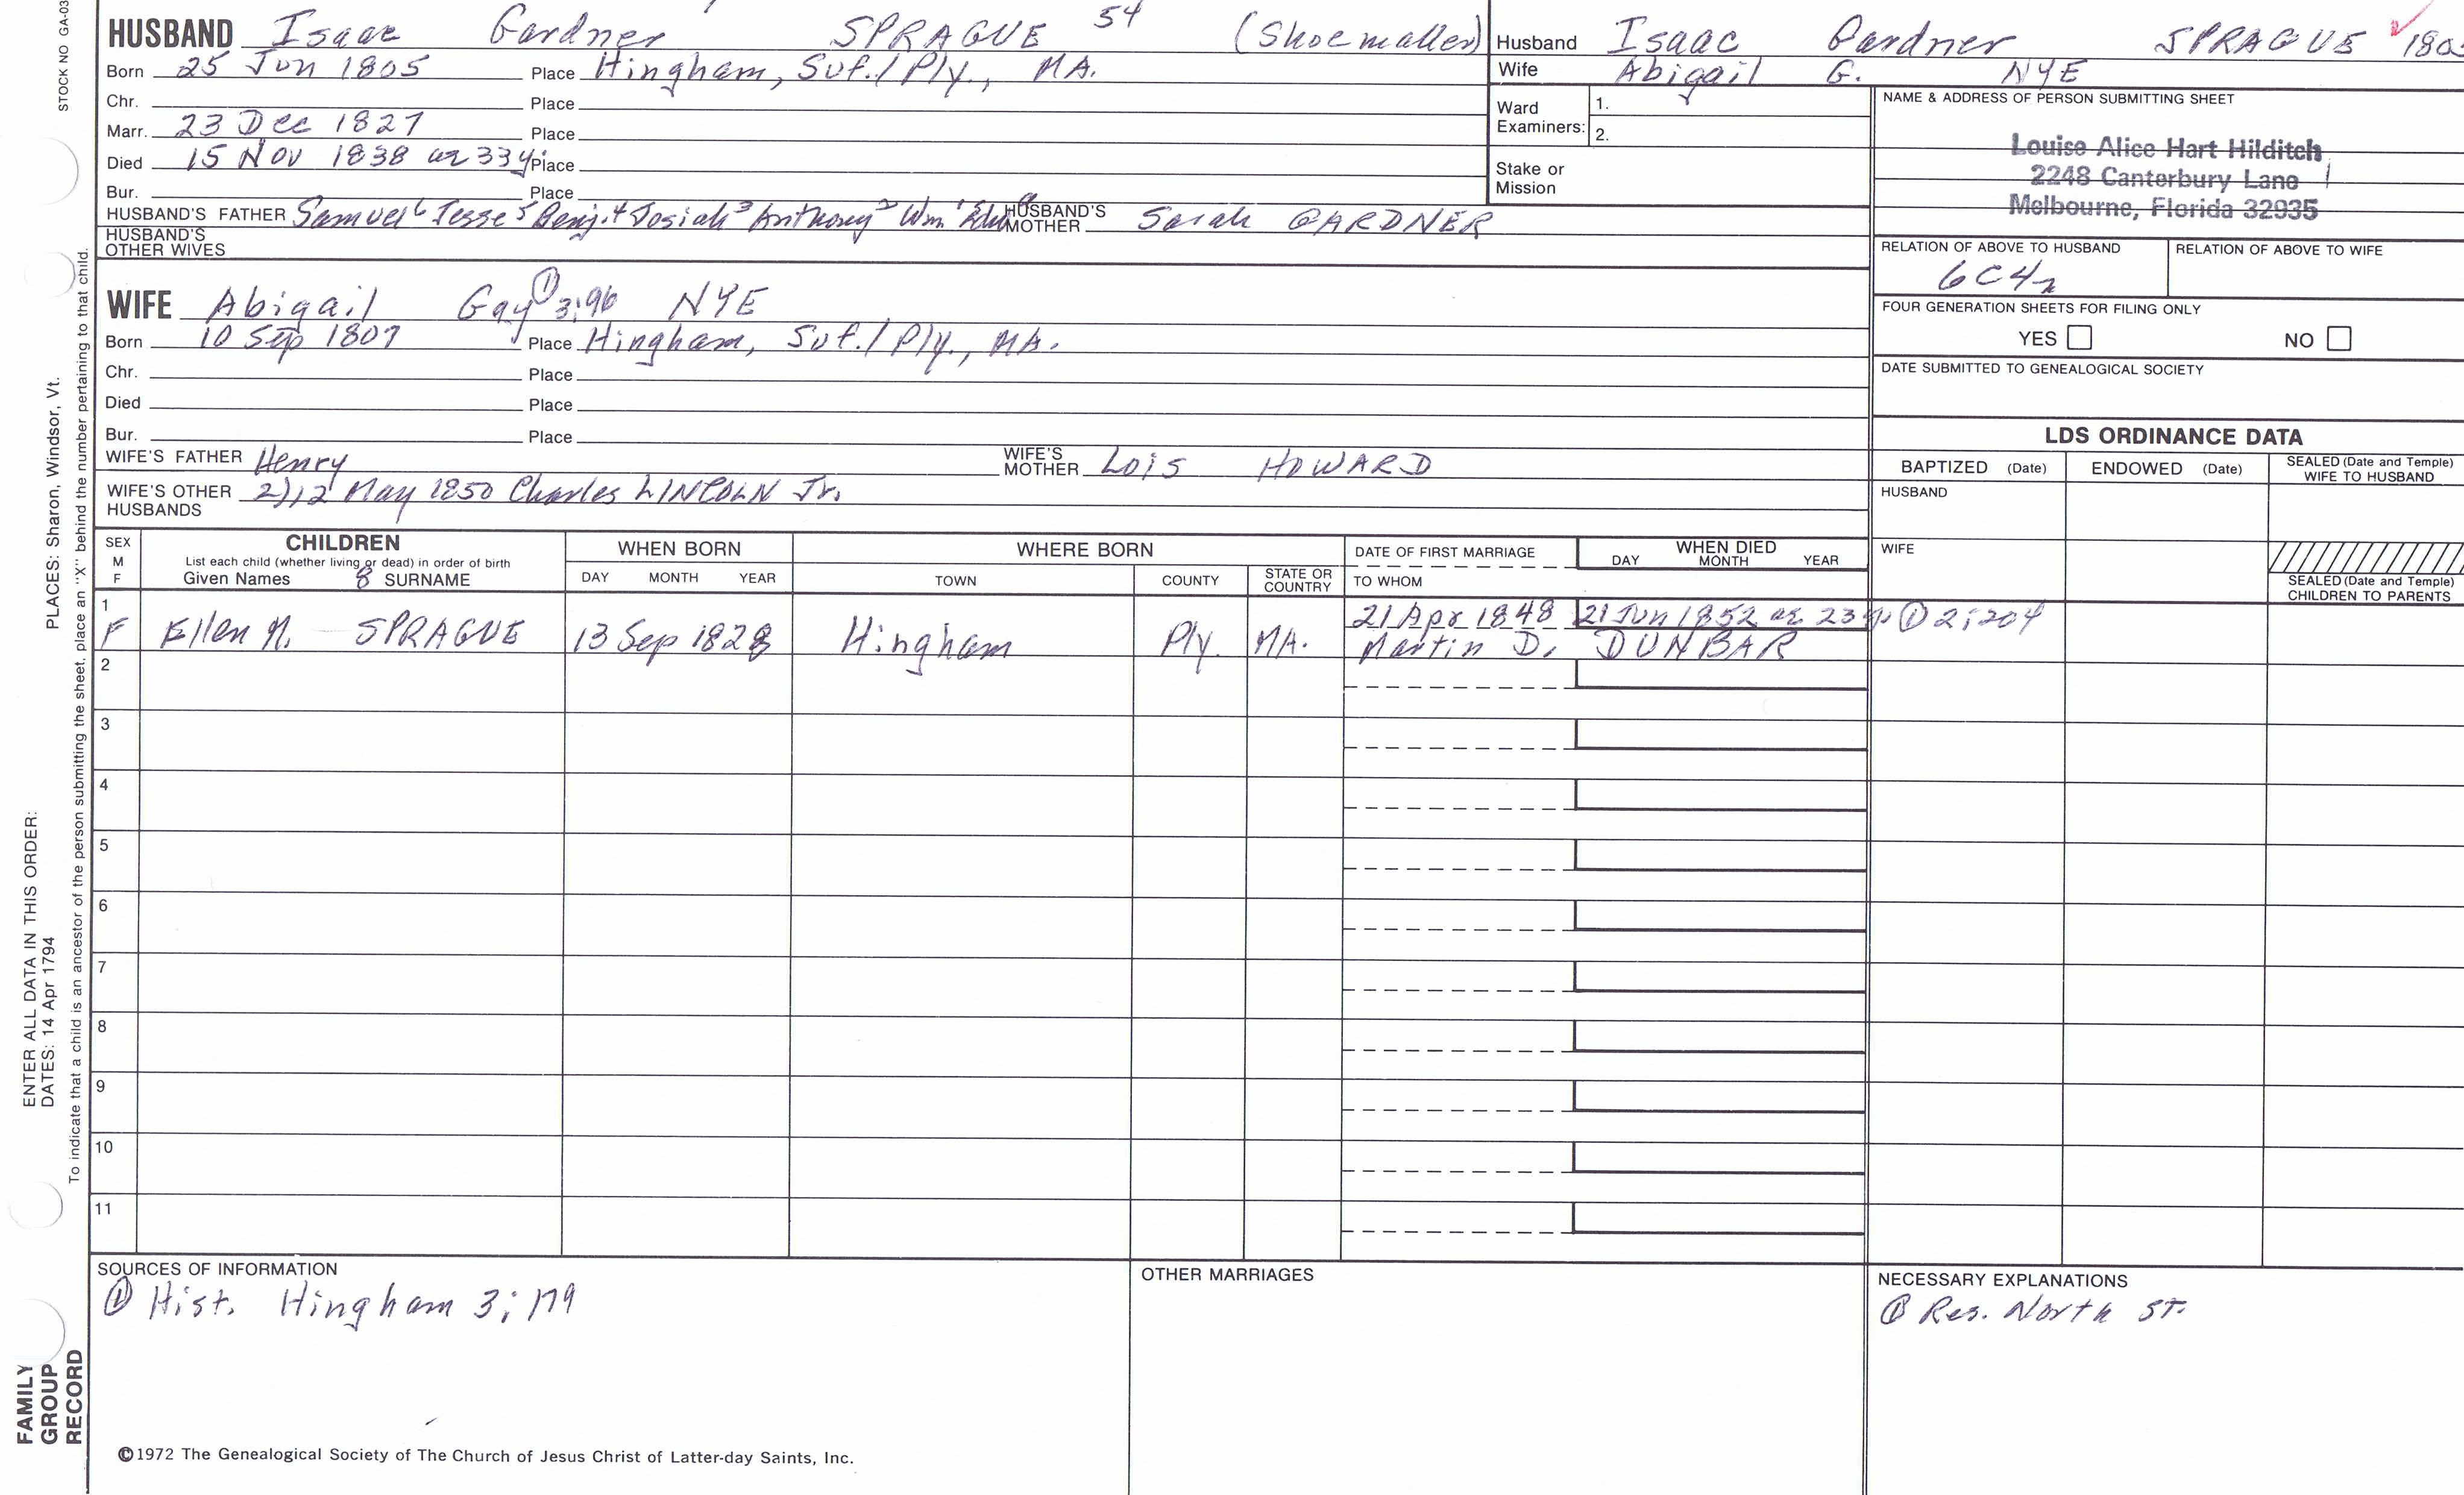 STOCK NO GA-03
HUSBAND Isaac Gardner SPRAGUE 54 (Shoemaker)
Born 25 Jun 1805 Place Hingham, Suf./Ply., MA.
Chr. Place
Marr. 23 Dec 1827 Place
Died 15 Nov 1838 ae 33y. Place
Bur. Place
HUSBAND'S FATHER Samuel 6 Jesse 5 Benj. 4 Josiah 3 Anthony 2 Wm 1 HUSBAND'S MOTHER Sarah GARDNER
HUSBAND'S OTHER WIVES
WIFE Abigail Gay ① 3;96 NYE
Born 10 Sep 1807 Place Hingham, Suf./Ply., MA.
Chr. Place
Died Place
Bur. Place
WIFE'S FATHER Henry WIFE'S MOTHER Lois HOWARD
WIFE'S OTHER HUSBANDS 2),12 May 1850 Charles LINCOLN Jr.
Husband Isaac Gardner SPRAGUE 180
Wife Abigail G. NYE
Ward Examiners: 1.
2.
Stake or Mission
NAME & ADDRESS OF PERSON SUBMITTING SHEET
Louise Alice Hart Hilditch
2248 Canterbury Lane
Melbourne, Florida 32935
RELATION OF ABOVE TO HUSBAND RELATION OF ABOVE TO WIFE
6C4r
FOUR GENERATION SHEETS FOR FILING ONLY
YES NO
DATE SUBMITTED TO GENEALOGICAL SOCIETY
LDS ORDINANCE DATA
BAPTIZED (Date) ENDOWED (Date) SEALED (Date and Temple) WIFE TO HUSBAND
HUSBAND
WIFE
SEALED (Date and Temple) CHILDREN TO PARENTS
SEX M F
CHILDREN
List each child (whether living or dead) in order of birth
Given Names 8 SURNAME
WHEN BORN
DAY MONTH YEAR
WHERE BORN
TOWN COUNTY STATE OR COUNTRY
DATE OF FIRST MARRIAGE
TO WHOM
WHEN DIED
DAY MONTH YEAR
1 F Ellen M. SPRAGUE 13 Sep 1828 Hingham Ply. MA. 21 Apr 1848 21 Jun 1852 ae 23y. ① 2;204
Martin D. DUNBAR
2
3
4
5
6
7
8
9
10
11
SOURCES OF INFORMATION
① Hist. Hingham 3; 179
OTHER MARRIAGES
NECESSARY EXPLANATIONS
① Res. North St.
©1972 The Genealogical Society of The Church of Jesus Christ of Latter-day Saints, Inc.
FAMILY GROUP RECORD
ENTER ALL DATA IN THIS ORDER:
DATES: 14 Apr 1794
PLACES: Sharon, Windsor, Vt.
To indicate that a child is an ancestor of the person submitting the sheet, place an "X" behind the number pertaining to that child.